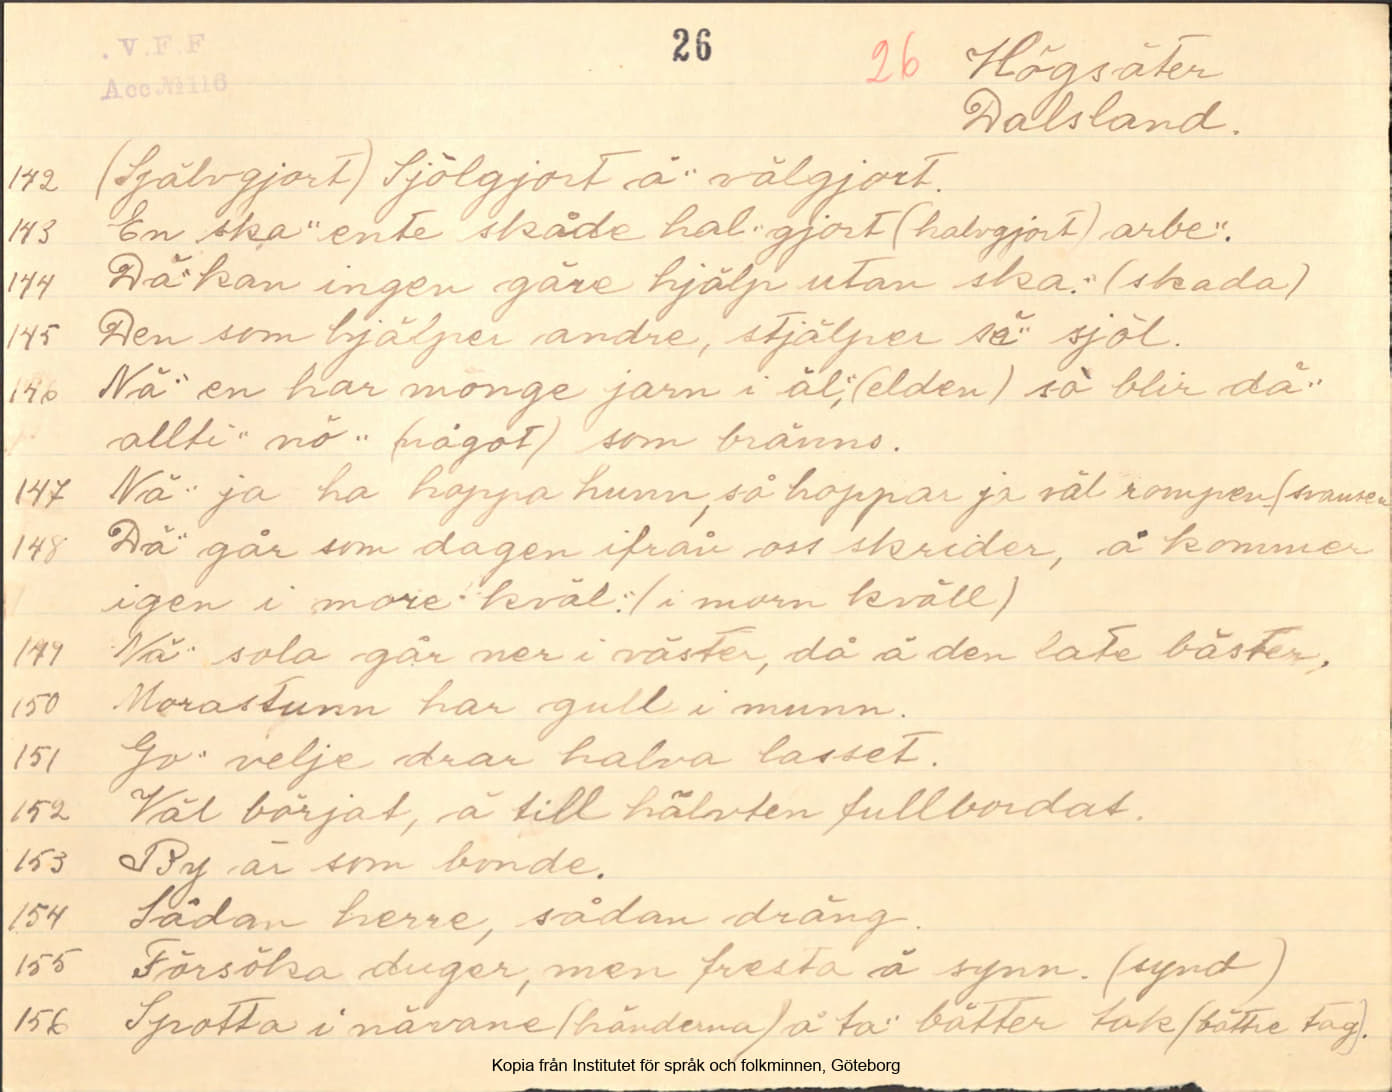 . V. F. F
Acc № 116
26
26 Högsäter
Dalsland.
142 (Självgjort) Sjölgjort ä" välgjort.
143 En ska" ente skåde hal" gjort (halvgjort) arbe".
144 Dä" kan ingen gäre hjälp utan ska." (skada)
145 Den som hjälper andre, stjälper sä" sjöl.
146 Nä" en har mönge jarn i äl", (elden) så blir dä"
allti" nö" (något) som bränns.
147 Nä" ja ha hoppa hunn, så hoppar ja väl rompen (svansen
148 Dä" går som dagen ifrån oss skrider, å kommer
igen i more" kväl." (i morn kväll)
149 Nä" sola går ner i väster, då ä den late bäster.
150 Morastunn har gull i munn.
151 Go" velje drar halva lasset.
152 Väl börjat, ä till hälvten fullbordat.
153 By är som bonde.
154 Sådan herre, sådan dräng.
155 Försöka duger, men fresta ä synn. (synd)
156 Spotta i nävane (händerna) å ta" bätter tak (bättre tag).
Kopia från Institutet för språk och folkminnen, Göteborg